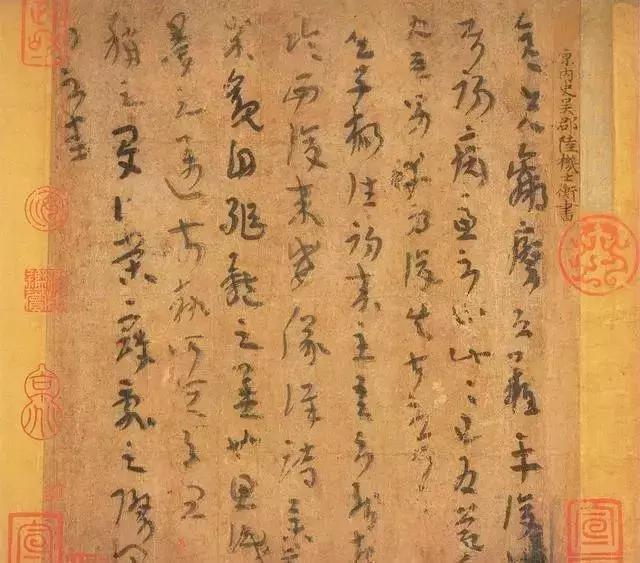 晉內史吳郡陸機士衡書
彥先羸瘵恐難平復
初病慮不止此此已為慶
唯男幸為復失前憂耳
吳子楊往初來主吾不能盡
臨西復來威儀詳跱舉動
成觀自軀體之美也思識
量之邁前執所恒有宜
稱之夏伯榮寇亂之際聞
問不悉